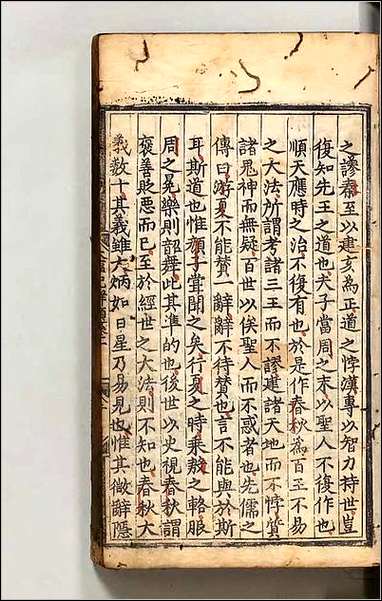 之謬秦至以建亥為正道之悖漢專以智力持世豈
復知先王之道也夫子當周之末以聖人不復作也
順天應時之治不復有也於是作春秋為百王不易
之大法所謂考諸三王而不謬建諸天地而不悖質
諸鬼神而無疑百世以俟聖人而不惑者也先儒之
傳曰游夏不能賛一辭辭不待賛也言不能與於斯
耳斯道也惟顔子甞聞之矣行夏之時乘殷之輅服
周之冕樂則韶舞此其凖的也後世以史視春秋謂
襃善貶惡而已至於經世之大法則不知也春秋大
義數十其義雖大炳如日星乃易見也惟其微辭隱